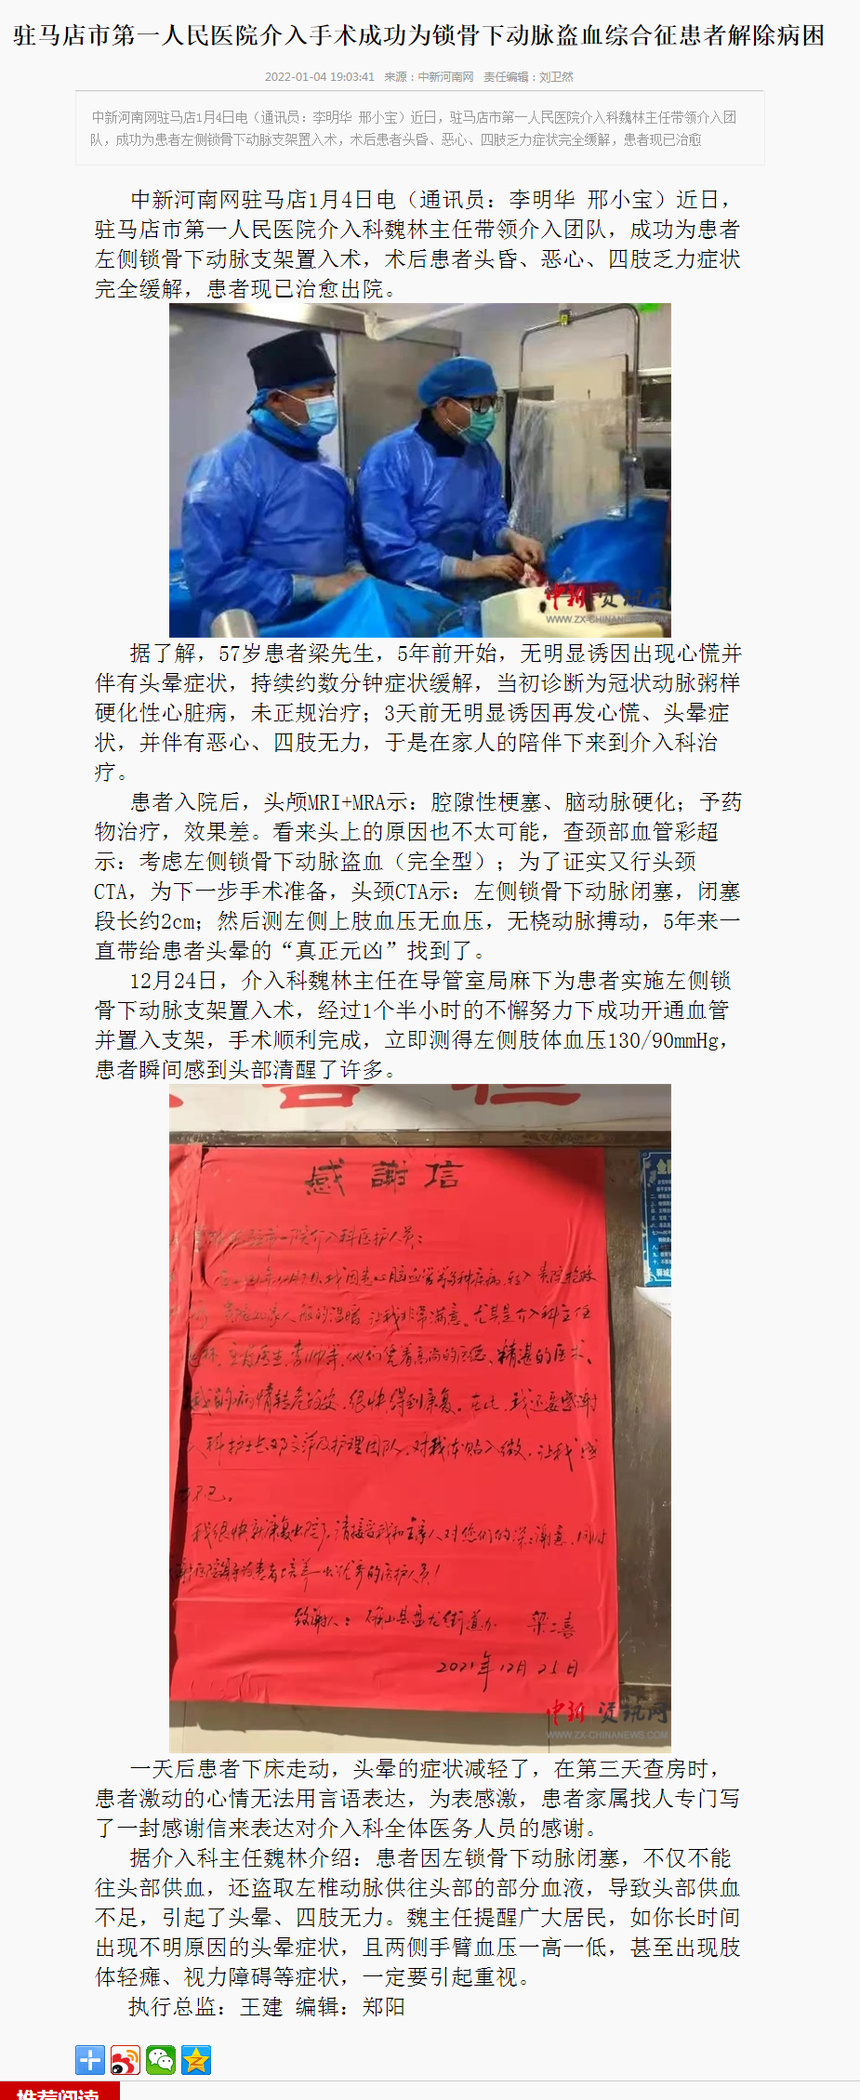 驻马店市第一人民医院介入手术成功为锁骨下动脉盗血综合征患者解除病困
2022-01-04 19:03:41 来源：中新河南网 责任编辑：刘卫然
中新河南网驻马店1月4日电（通讯员：李明华 邢小宝）近日，驻马店市第一人民医院介入科魏林主任带领介入团
队，成功为患者左侧锁骨下动脉支架置入术，术后患者头昏、恶心、四肢乏力症状完全缓解，患者现已治愈
中新河南网驻马店1月4日电（通讯员：李明华 邢小宝）近日，
驻马店市第一人民医院介入科魏林主任带领介入团队，成功为患者
左侧锁骨下动脉支架置入术，术后患者头昏、恶心、四肢乏力症状
完全缓解，患者现已治愈出院。
中新 资讯网
WWW.ZX-CHINANEWS.COM
据了解，57岁患者梁先生，5年前开始，无明显诱因出现心慌并
伴有头晕症状，持续约数分钟症状缓解，当初诊断为冠状动脉粥样
硬化性心脏病，未正规治疗；3天前无明显诱因再发心慌、头晕症
状，并伴有恶心、四肢无力，于是在家人的陪伴下来到介入科治
疗。
患者入院后，头颅MRI+MRA示：腔隙性梗塞、脑动脉硬化；予药
物治疗，效果差。看来头上的原因也不太可能，查颈部血管彩超
示：考虑左侧锁骨下动脉盗血（完全型）；为了证实又行头颈
CTA，为下一步手术准备，头颈CTA示：左侧锁骨下动脉闭塞，闭塞
段长约2cm；然后测左侧上肢血压无血压，无桡动脉搏动，5年来一
直带给患者头晕的“真正元凶”找到了。
12月24日，介入科魏林主任在导管室局麻下为患者实施左侧锁
骨下动脉支架置入术，经过1个半小时的不懈努力下成功开通血管
并置入支架，手术顺利完成，立即测得左侧肢体血压130/90mmHg，
患者瞬间感到头部清醒了许多。
感謝信
一院介入科医护人员：
我因患心脑血管等多种疾病，
的温暖，让我非常满意。尤其是介入科主任
他们凭着高尚的医德、精湛的医术、
病情转危为安，很快得到康复。在此，我还要感谢
科护士长邓文萍及护理团队，对我体贴入微，让我感
不已。
我很快就康复出院了，请接受我和全家人对您们的深深谢意，同时
培养出优秀的医护人员！
致谢人：确山县盘龙街道办 梁二喜
2021年12月25日
中新 资讯网
WWW.ZX-CHINANEWS.COM
一天后患者下床走动，头晕的症状减轻了，在第三天查房时，
患者激动的心情无法用言语表达，为表感激，患者家属找人专门写
了一封感谢信来表达对介入科全体医务人员的感谢。
据介入科主任魏林介绍：患者因左锁骨下动脉闭塞，不仅不能
往头部供血，还盗取左椎动脉供往头部的部分血液，导致头部供血
不足，引起了头晕、四肢无力。魏主任提醒广大居民，如你长时间
出现不明原因的头晕症状，且两侧手臂血压一高一低，甚至出现肢
体轻瘫、视力障碍等症状，一定要引起重视。
执行总监：王建 编辑：郑阳
推荐阅读